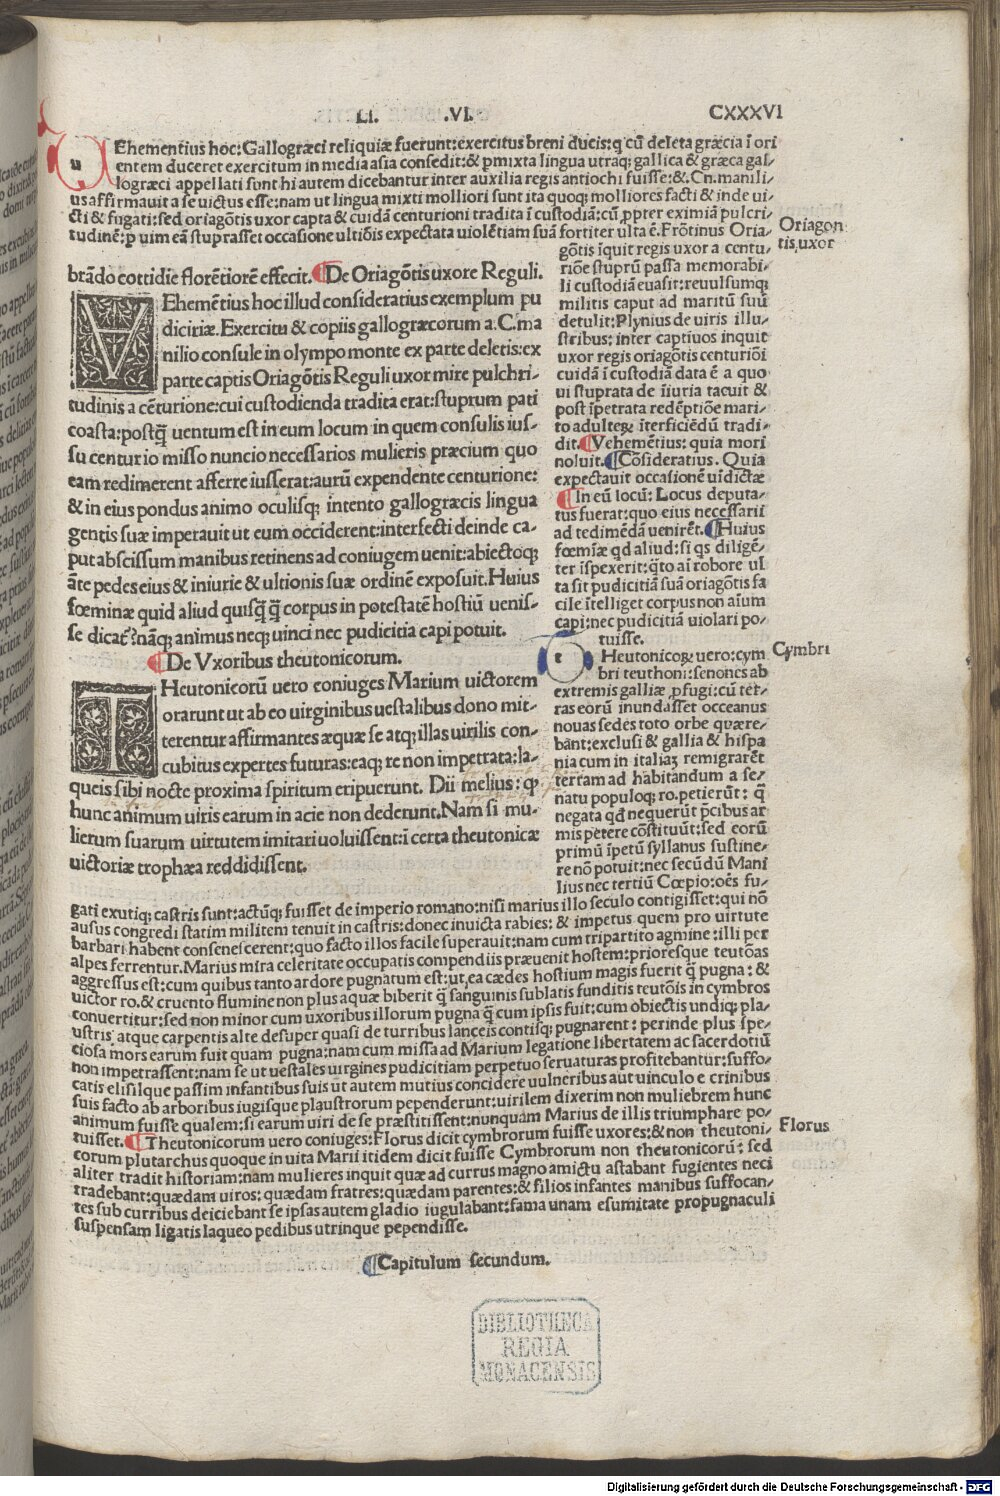 LI. .VI. CXXXVI
uEhementius hoc: Gallogræci reliquiæ fuerunt: exercitus breni ducis: q cū deleta græcia ī ori
entem duceret exercitum in media asia consedit: & pmixta lingua utraq; gallica & græca gal/
lográeci appellati sunt hi autem dicebantur inter auxilia regis antiochi fuisse: &. Cn. manili/
us affirmauit a se uictus esse: nam ut lingua mixti molliori sunt ita quoq; molliores facti & inde ui/
cti & fugati: sed oriagōtis uxor capta & cuidā centurioni tradita ī custodiā: cū ppter eximiā pulcri/
tudinē: p uim eā stuprasset occasione ultiōis expectata uiolētiam suā fortiter ulta ē. Frōtinus Oria/
Oriagon
tis uxor
gōtis īquit regis uxor a centu/
riōe stuprū passa memorabi/
li custodiā euasit: reuulsumq;
militis caput ad maritū suū
detulit: Plynius de uiris illu/
stribus: inter captiuos inquit
uxor regis oriagōtis centuriōi
cuidā ī custodiā data ē a quo
ui stuprata de īiuria tacuit &
post īpetrata redēptiōe mari/
to adulteꝝ īterficiēdū tradi/
dit. ¶ Vehemētius: quia mori
noluit. ¶ Cōsideratius. Quia
expectauit occasionē uidictæ
¶ In eū locū: Locus deputa/
tus fuerat: quo eius necessarii
ad redimēdā uenirēt. ¶ Huius
fœmīæ qd aliud: si qs diligē/
ter īspexerit: qto ai robore ul
ta sit pudicitiā suā oriagōtis fa
cile ītelliget corpus non aīum
capi: nec pudicitiā uiolari po/
tuisse.
brādo cottidie florētiorē effecit. ¶ De Oriagōtis uxore Reguli.
VEhemētius hoc illud consideratius exemplum pu
diciriæ. Exercitu & copiis gallogræcorum a. C. ma
nilio consule in olympo monte ex parte deletis: ex
parte captis Oriagōtis Reguli uxor mire pulchri/
tudinis a cēturione: cui custodienda tradita erat: stuprum pati
coasta: postq̄ uentum est in eum locum in quem consulis ius/
su centurio misso nuncio necessarios mulieris præcium quo
eam redimerent afferre iusserat: aurū expendente centurione:
& in eius pondus animo oculisq; intento gallogræcis lingua
gentis suæ imperauit ut eum occiderent: interfecti deinde ca/
put abscissum manibus retinens ad coniugem uenit: abiectoq;
āte pedes eius & iniurie & ultionis suæ ordinē exposuit. Huius
fœminæ quid aliud quisq̄ q̄ corpus in potestatē hostiū uenis/
se dicat? nāq; animus neq; uinci nec pudicitia capi potuit.
¶ De Vxoribus theutonicorum.
THeutonicorū uero coniuges Marium uictorem
orarunt ut ab eo uirginibus uestalibus dono mit/
terentur affirmantes æquæ se atq; illas uirilis con/
cubitus expertes futuras: eaq; re non impetrata: la/
queis sibi nocte proxima spiritum eripuerunt. Dii melius: q
hunc animum uiris earum in acie non dederunt. Nam si mu/
lierum suarum uirtutem imitari uoluissent: ī certa theutonicæ
uictoriæ trophæa reddidissent.
Cymbri
tHeutonicoꝝ uero: cym
bri teuthoni: senones ab
extremis galliæ pfugi: cū ter/
ras eorū inundasset occeanus
nouas sedes toto orbe quære/
bāt: exclusi & gallia & hispa
nia cum in italiaꝫ remigrarēt
terram ad habitandum a se/
natu populoq; ro. petierūt: q̄
negata qd nequerūt pcibus ar
mis petere cōstituūt: sed eorū
primū īpetū syllanus sustine/
re nō potuit: nec secūdū Mani
lius nec tertiū Cœpio: oēs fu/
gati exutiq; castris sunt: actūq; fuisset de imperio romano: nisi marius illo seculo contigisset: qui nō
ausus congredi statim militem tenuit in castris: donec inuicta rabies: & impetus quem pro uirtute
barbari habent consenescerent: quo facto illos facile superauit: nam cum tripartito agmine: illi per
alpes ferrentur. Marius mira celeritate occupatis compendiis præuenit hostem: prioresque teutōas
aggressus est: cum quibus tanto ardore pugnatum est: ut, ea cædes hostium magis fuerit q̄ pugna: &
uictor ro. & cruento flumine non plus aquæ biberit q̄ sanguinis sublatis funditis teutōis in cymbros
conuertitur: sed non minor cum uxoribus illorum pugna q̄ cum ipsis fuit: cum obiectis undiq; pla/
ustris atque carpentis alte desuper quasi de turribus lanceis contisq; pugnarent: perinde plus spe/
ciosa mors earum fuit quam pugna: nam cum missa ad Marium legatione libertatem ac sacerdotiū
non impetrassent: nam se ut uestales uirgines pudicitiam perpetuo seruaturas profitebantur: suffo/
catis elisisque passim infantibus suis ut autem mutius concidere uulneribus aut uinculo e crinibus
suis facto ab arboribus iugisque plaustrorum pependerunt: uirilem dixerim non muliebrem hunc
animum fuisse qualem: si earum uiri de se præstitissent: nunquam Marius de illis triumphare po/
tuisset. ¶ Theutonicorum uero coniuges: Florus dicit cymbrorum fuisse uxores: & non theutoni/
Florus
corum plutarchus quoque in uita Marii itidem dicit fuisse Cymbrorum non theutonicorū: sed
aliter tradit historiam: nam mulieres inquit quæ ad currus magno amictu astabant fugientes neci
tradebant: quædam uiros: quædam fratres: quædam parentes: & filios infantes manibus suffocan/
tes sub curribus deiciebant se ipsas autem gladio iugulabant: fama unam e sumitate propugnaculi
suspensam ligatis laqueo pedibus utrinque pependisse.
¶ Capitulum secundum.
BIBLIOTHECA
REGIA
MONACENSIS
Digitalisierung gefördert durch die Deutsche Forschungsgemeinschaft - DFG